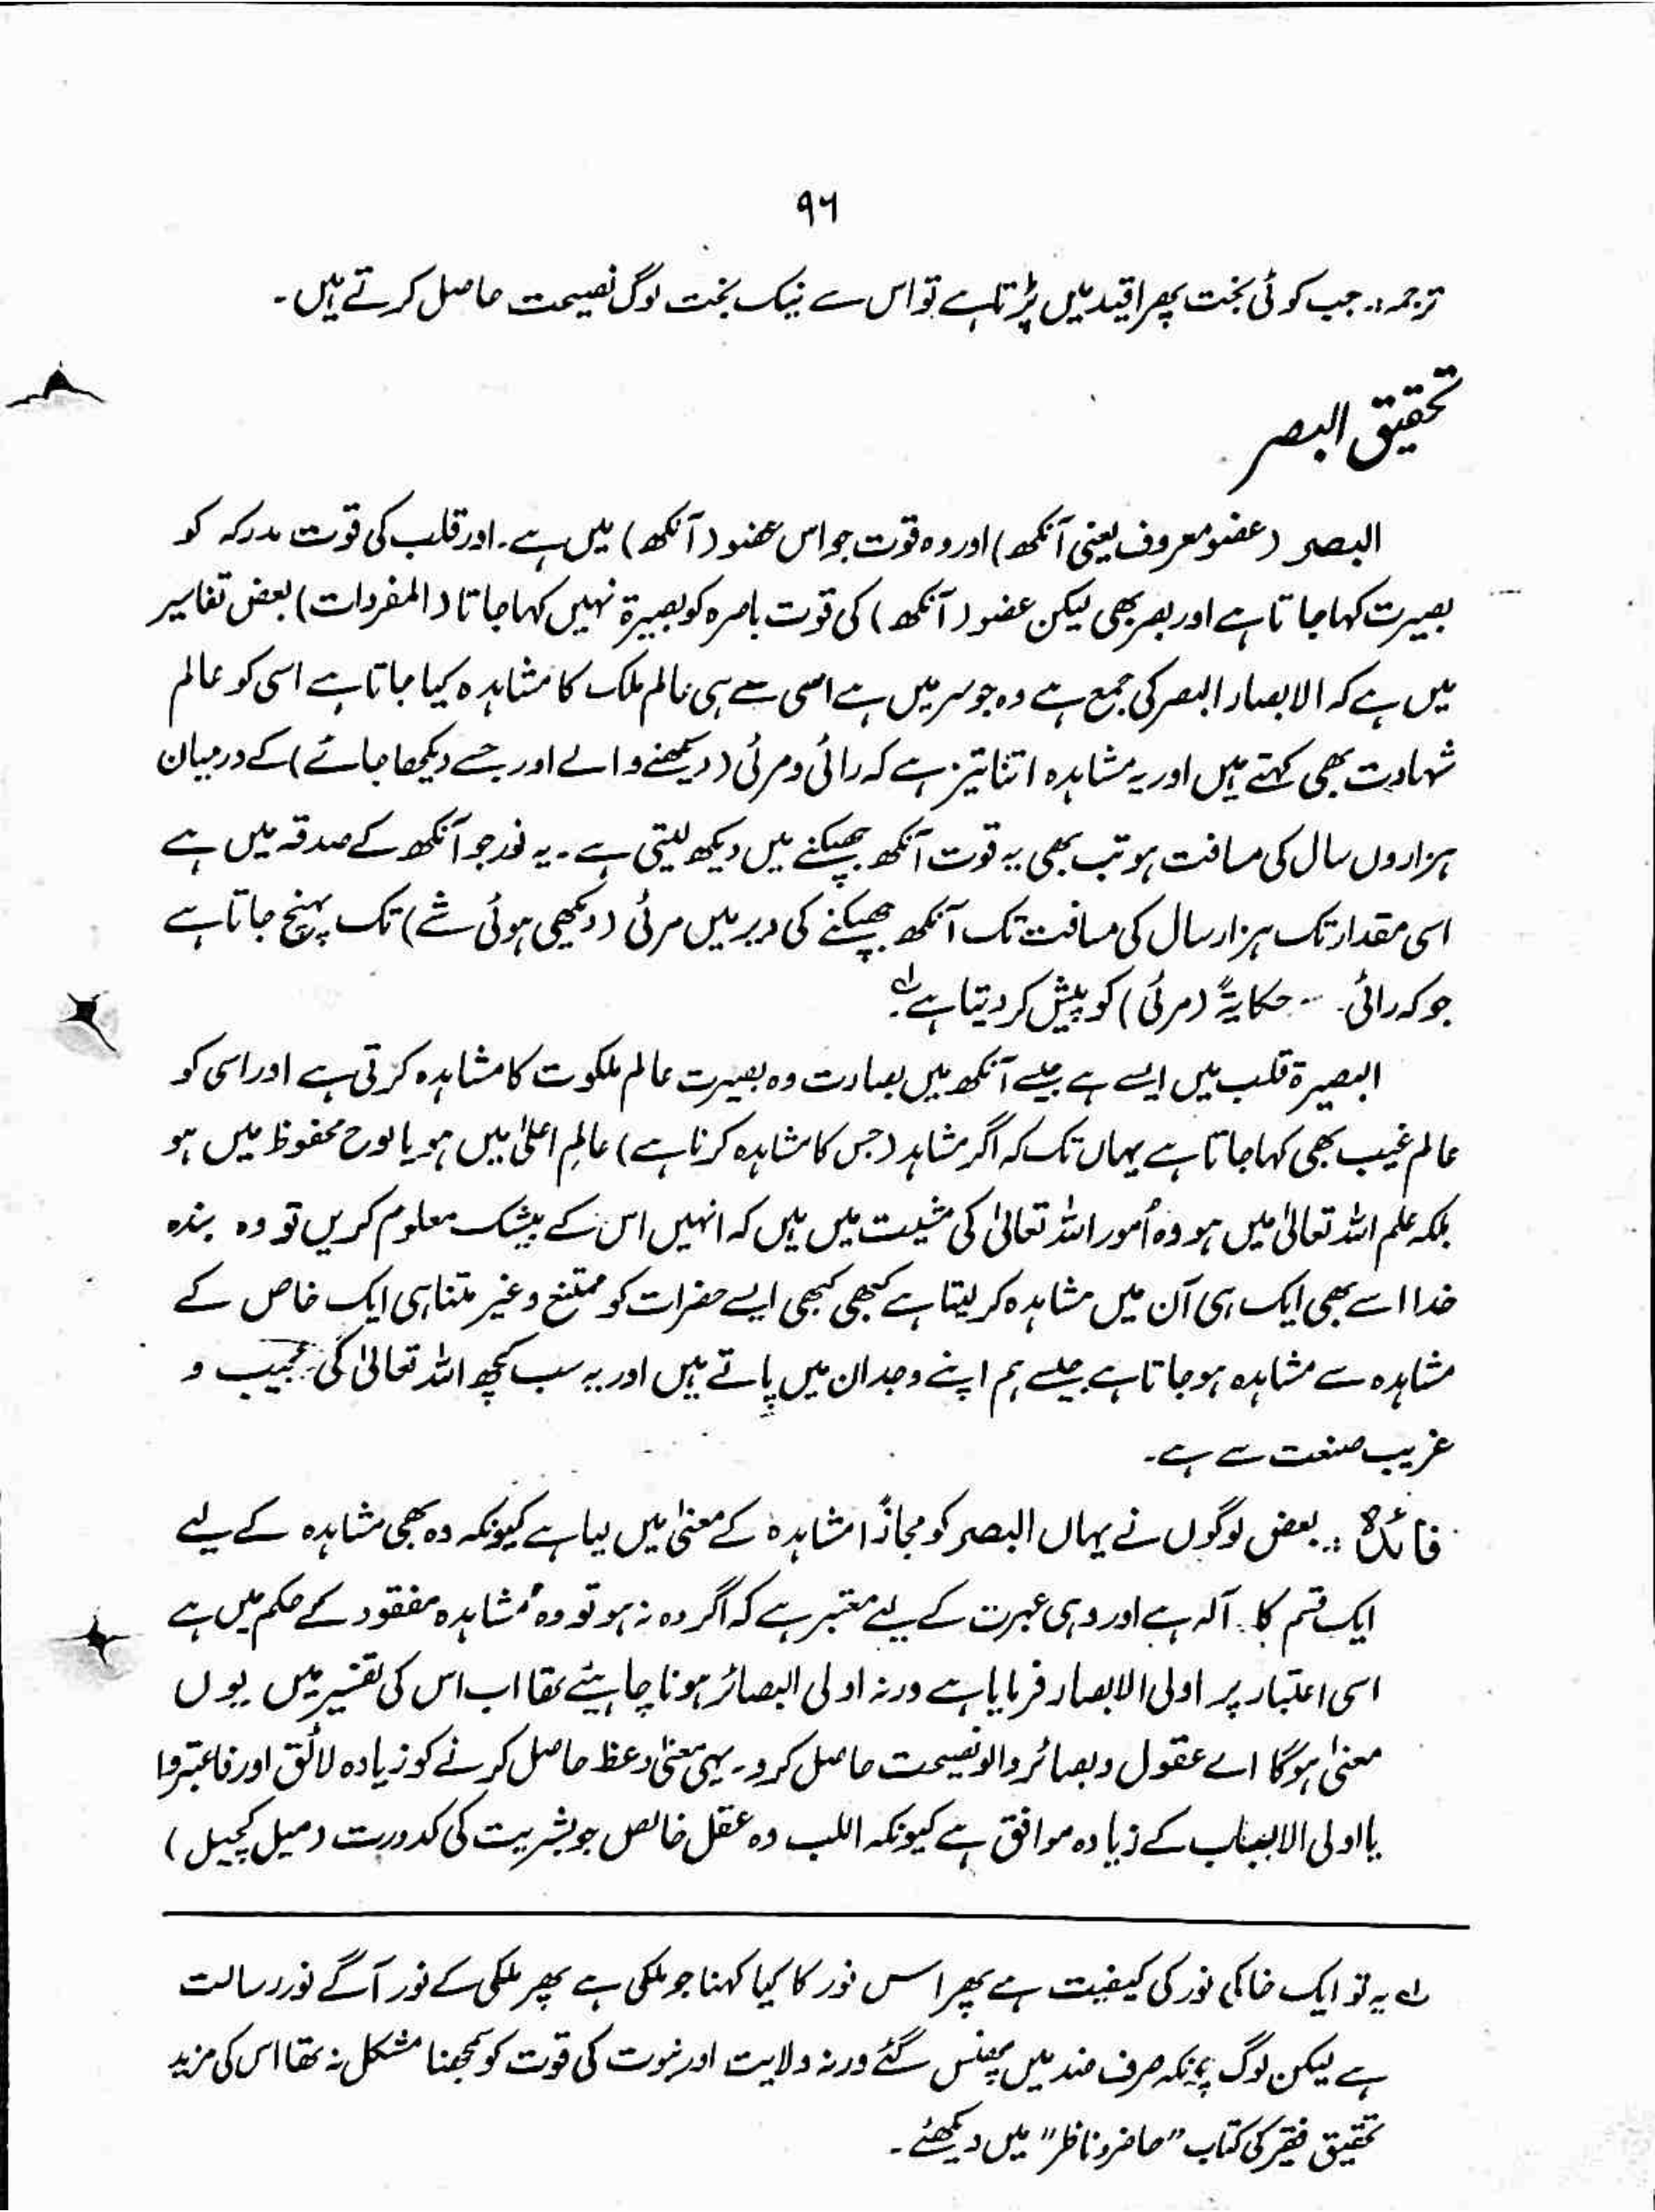 ۹۶
ترجمہ:۔ جب کوئی بخت پھرا قید میں پڑتا ہے تو اس سے نیک بخت لوگ نصیحت حاصل کرتے ہیں۔
تحقیق البصر
البصر (عضو معروف یعنی آنکھ) اور وہ قوت جو اس عضو (آنکھ) میں ہے۔ اور قلب کی قوت مدرکہ کو
بصیرت کہا جاتا ہے اور بصر بھی لیکن عضو (آنکھ) کی قوت باصرہ کو بصیرۃ نہیں کہا جاتا (المفردات) بعض تفاسیر
میں ہے کہ الابصار البصر کی جمع ہے وہ جو سر میں ہے اسی سے ہی عالم ملک کا مشاہدہ کیا جاتا ہے اسی کو عالم
شہادت بھی کہتے ہیں اور یہ مشاہدہ اتنا تیز ہے کہ رائی و مرئی (دیکھنے والے اور جسے دیکھا جائے) کے درمیان
ہزاروں سال کی مسافت ہو تب بھی یہ قوت آنکھ جھپکنے میں دیکھ لیتی ہے۔ یہ نور جو آنکھ کے صدقہ میں ہے
اسی مقدار تک ہزار سال کی مسافت تک آنکھ جھپکنے کی دیر میں مرئی (دیکھی ہوئی شے) تک پہنچ جاتا ہے
جو کہ رائی حکایۃً (مرئی) کو پیش کر دیتا ہے لہ
البصیرۃ قلب میں ایسے ہے جیسے آنکھ میں بصارت وہ بصیرت عالم ملکوت کا مشاہدہ کرتی ہے اور اسی کو
عالم غیب بھی کہا جاتا ہے یہاں تک کہ اگر مشاہد (جس کا مشاہدہ کرنا ہے) عالمِ اعلیٰ میں ہو یا لوح محفوظ میں ہو
بلکہ علم اللہ تعالیٰ میں ہو وہ اُمور اللہ تعالیٰ کی مشیت میں ہیں کہ انہیں اس کے بیشک معلوم کریں تو وہ بندہ
خدا اسے بھی ایک ہی آن میں مشاہدہ کر لیتا ہے کبھی کبھی ایسے حضرات کو ممتنع و غیر متناہی ایک خاص کے
مشاہدہ سے مشاہدہ ہو جاتا ہے جیسے ہم اپنے وجدان میں پاتے ہیں اور یہ سب کچھ اللہ تعالیٰ کی عجیب و
غریب صنعت سے ہے۔
فائدہ:۔ بعض لوگوں نے یہاں البصر کو مجازًا مشاہدہ کے معنیٰ میں لیا ہے کیونکہ وہ بھی مشاہدہ کے لیے
ایک قسم کا آلہ ہے اور وہی عبرت کے لیے معتبر ہے کہ اگر وہ نہ ہو تو وہ مُشاہدہ مفقود کے حکم میں ہے
اسی اعتبار پر اولی الابصار فرمایا ہے ورنہ اولی البصائر ہونا چاہیئے تھا اب اس کی تفسیر میں یوں
معنیٰ ہوگا اے عقول و بصائر والو نصیحت حاصل کرو۔ یہی معنیٰ وعظ حاصل کرنے کو زیادہ لائق اور فاعتبروا
یا اولی الالباب کے زیادہ موافق ہے کیونکہ اللب وہ عقل خالص جو بشریت کی کدورت (میل کچیل)
لہ یہ تو ایک خاکی نور کی کیفیت ہے پھر اس نور کا کیا کہنا جو ملکی ہے پھر ملکی کے نور آگے نور رسالت
ہے لیکن لوگ چونکہ صرف ضد میں پھنس گئے ورنہ ولایت اور نبوت کی قوت کو سمجھنا مشکل نہ تھا اس کی مزید
تحقیق فقیر کی کتاب "حاضر و ناظر" میں دیکھئے۔